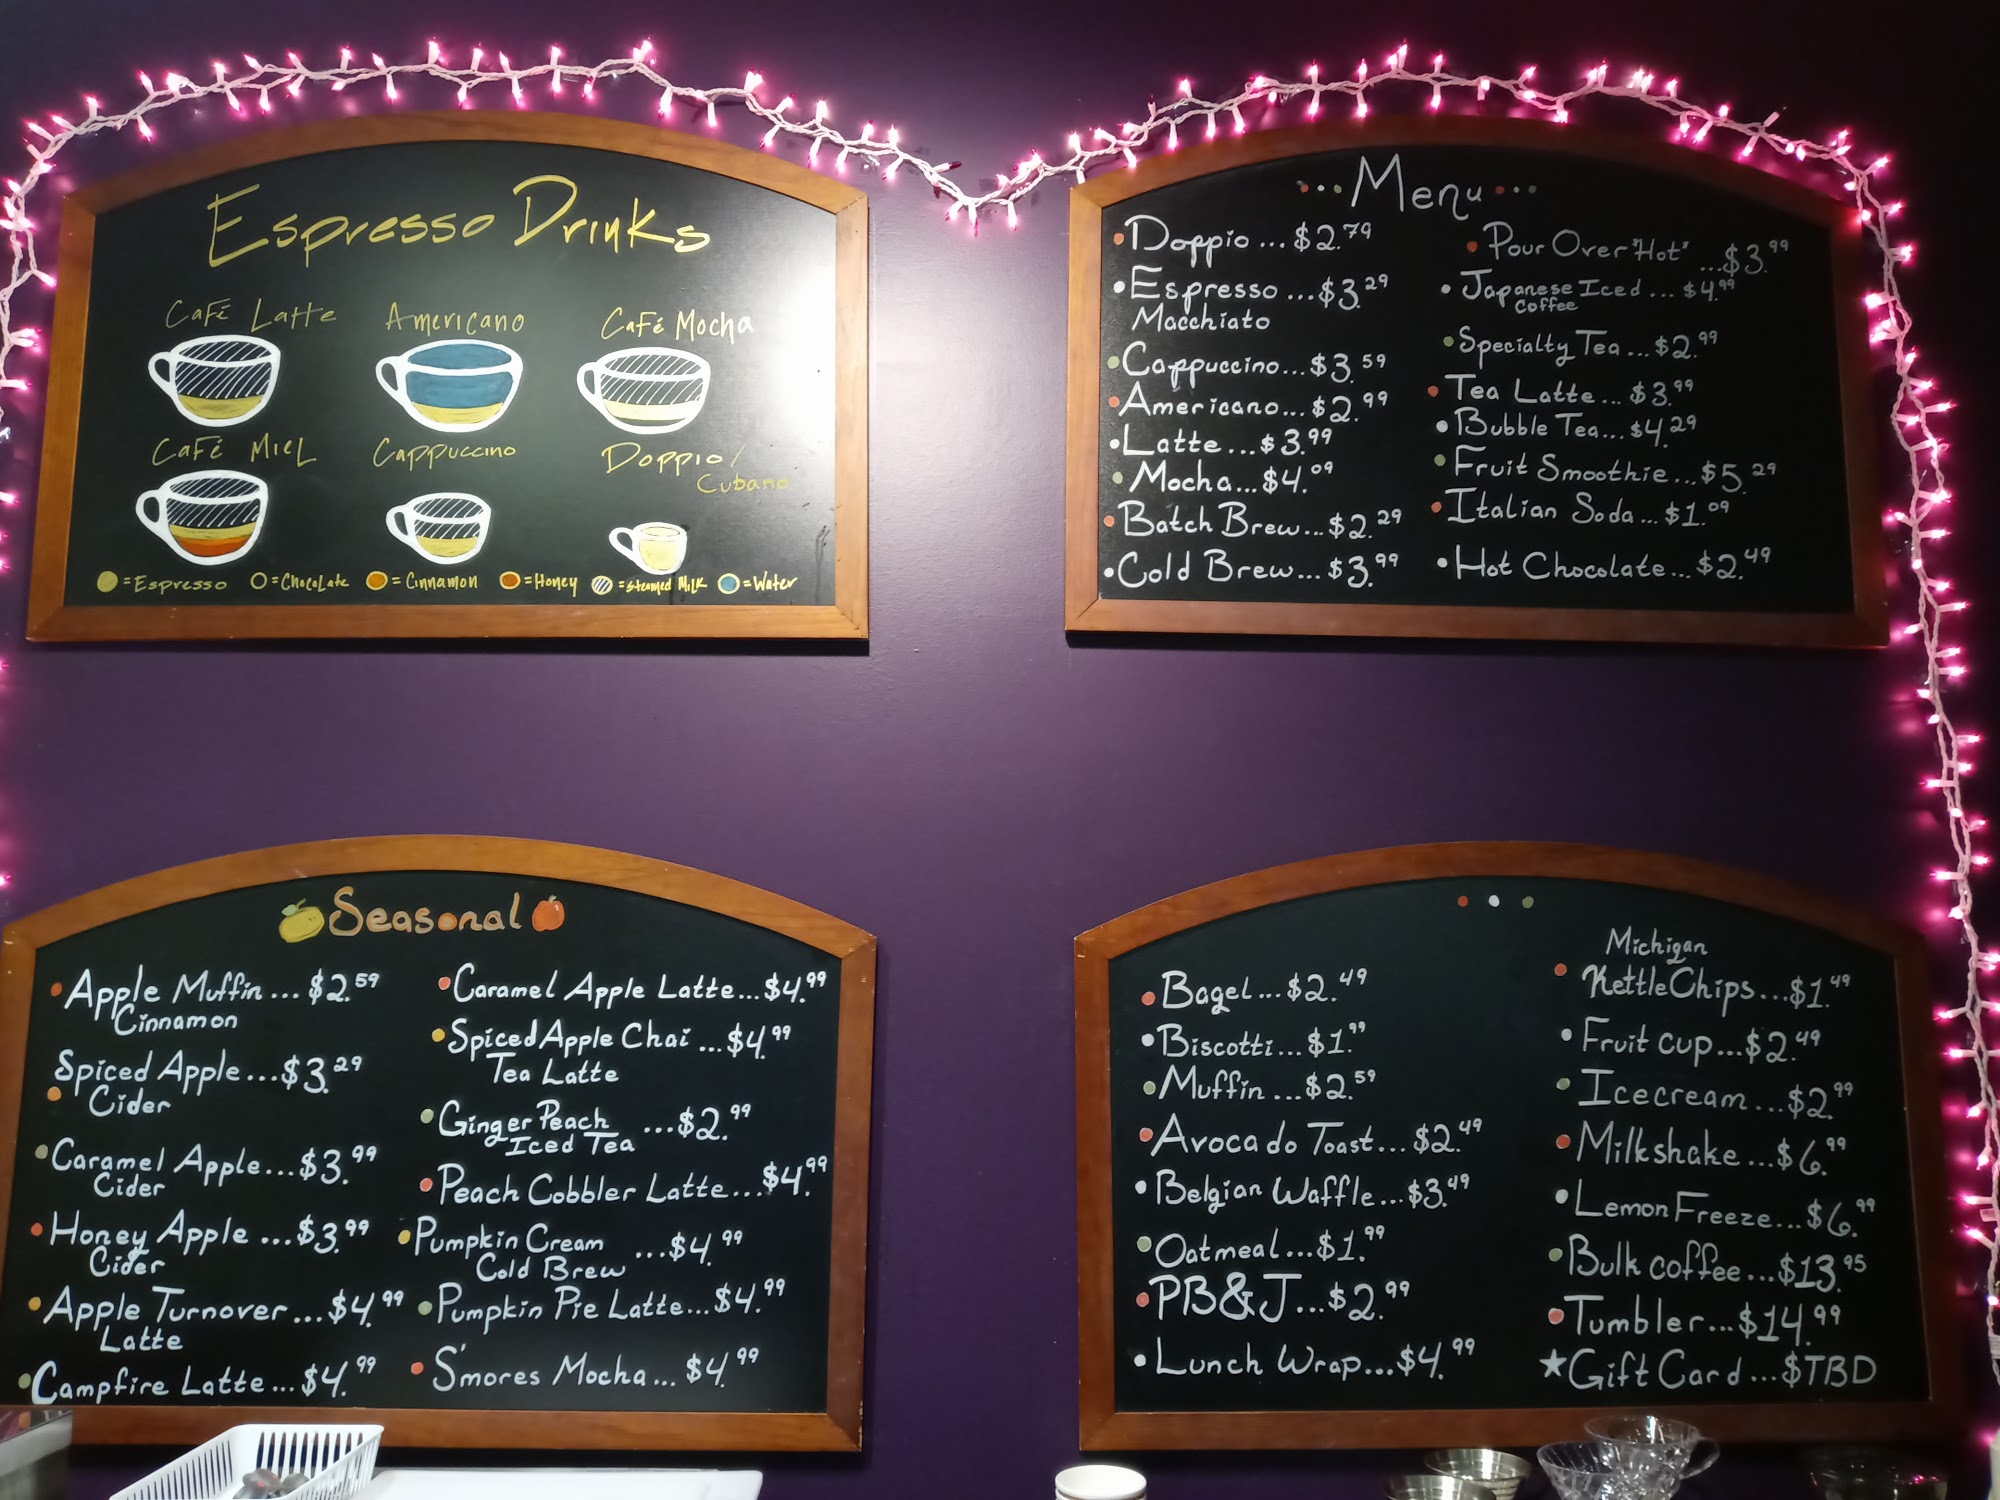 Espresso Drinks
Café Latte
Americano
Café Mocha
Café Miel
Cappuccino
Doppio/
Cubano
=Espresso
=Chocolate
=Cinnamon
=Honey
=Steamed Milk
=Water
...Menu...
Doppio...$2.79
Espresso...$3.29
Macchiato
Cappuccino...$3.59
Americano...$2.99
Latte...$3.99
Mocha...$4.09
Batch Brew...$2.29
Cold Brew...$3.99
Pour Over "Hot" ...$3.99
Japanese Iced...$4.99
Coffee
Specialty Tea...$2.99
Tea Latte...$3.99
Bubble Tea...$4.29
Fruit Smoothie...$5.29
Italian Soda...$1.09
Hot Chocolate...$2.49
Seasonal
Apple Muffin...$2.59
Cinnamon
Spiced Apple...$3.29
Cider
Caramel Apple...$3.99
Cider
Honey Apple...$3.99
Cider
Apple Turnover...$4.99
Latte
Campfire Latte...$4.99
Caramel Apple Latte...$4.99
Spiced Apple Chai...$4.99
Tea Latte
Ginger Peach...$2.99
Iced Tea
Peach Cobbler Latte...$4.99
Pumpkin Cream...$4.99
Cold Brew
Pumpkin Pie Latte...$4.99
S'mores Mocha...$4.99
Bagel...$2.49
Biscotti...$1.99
Muffin...$2.59
Avocado Toast...$2.49
Belgian Waffle...$3.49
Oatmeal...$1.99
PB&J...$2.99
Lunch Wrap...$4.99
Michigan
Kettle Chips...$1.49
Fruit cup...$2.49
Icecream...$2.99
Milkshake...$6.99
Lemon Freeze...$6.99
Bulk coffee...$13.95
Tumbler...$14.99
★Gift Card...$TBD